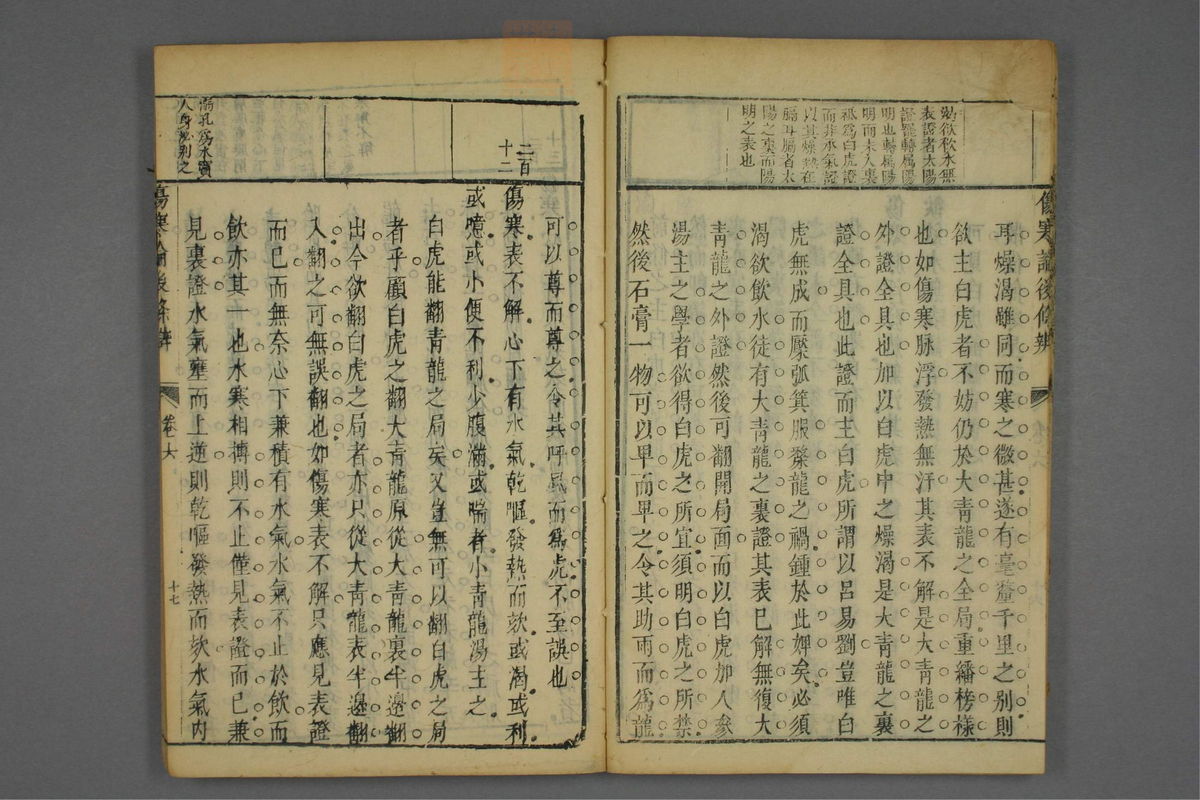 渴欲飲水無
表證者太陽
證罷轉属陽
明也轉属陽
明而未入裏
祗為白虎證
而非水氣證
以其燥熱在
膈耳膈者太
陽之裏而陽
明之表也
傷寒論後條辨
耳燥渴雖同而寒之微甚遂有毫釐千里之别則
欲主白虎者不妨仍於大青龍之全局重繙榜樣
也如傷寒脉浮發熱無汗其表不解是大青龍之
外證全具也加以白虎中之燥渴是大青龍之裏
證全具也此證而主白虎所謂以呂易劉豈唯白
虎無成而檿弧箕服漦龍之禍鍾於此婢矣必須
渴欲飲水徒有大青龍之裏證其表已解無復大
青龍之外證然後可翻開局面而以白虎加人參
湯主之學者欲得白虎之所宜須明白虎之所禁
然後石膏一物可以早而早之令其助雨而為龍
可以尊而尊之令其呼風而為虎不至誤也
二百
十二
傷寒表不解心下有水氣乾嘔發熱而欬或渴或利
或噫或小便不利少腹滿或喘者小青龍湯主之
白虎能翻青龍之局矣又豈無可以翻白虎之局
者乎顧白虎之翻大青龍原從大青龍裏半邊翻
出今欲翻白虎之局者亦只從大青龍表半邊翻
入翻之可無誤翻也如傷寒表不解只應見表證
而已而無奈心下兼積有水氣水氣不止於飲而
飲亦其一也水寒相摶則不止僅見表證而已兼
見裏證水氣壅而上逆則乾嘔發熱而欬水氣内
溺孔為水竇
人身
别之
傷寒論後條辨
卷六
十七